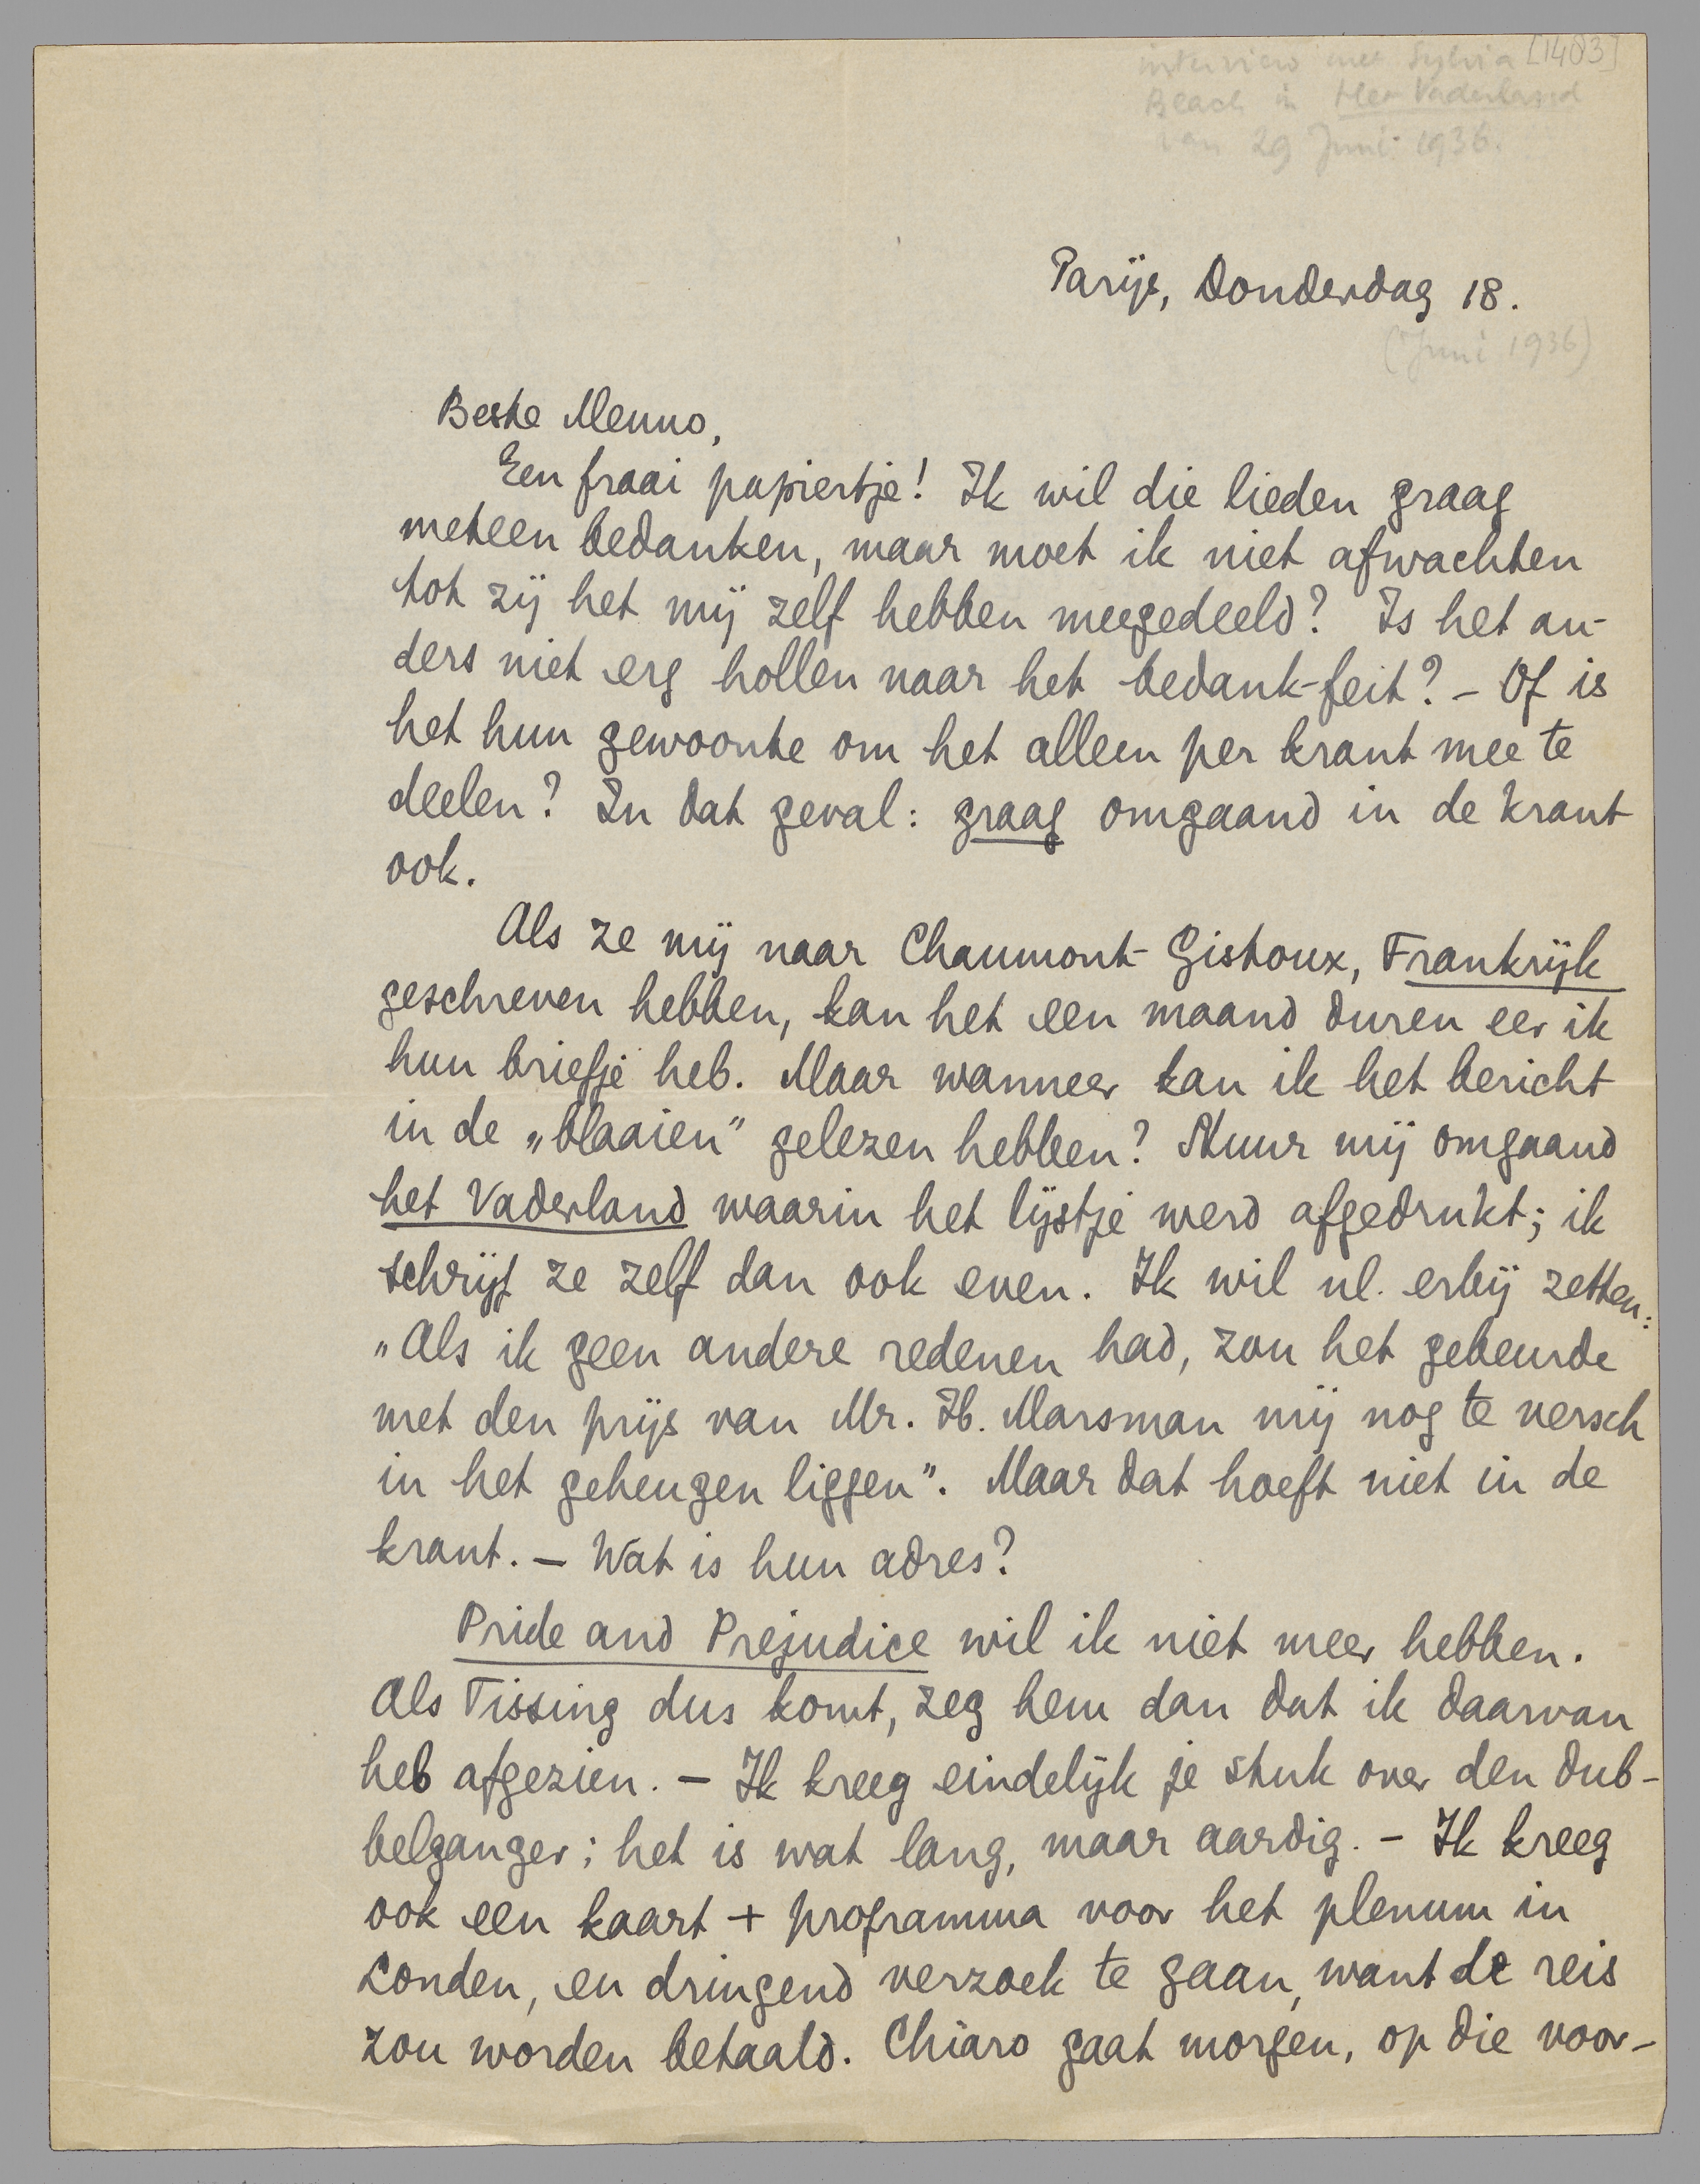 interview met Sylvia [1403]
Beach in Het Vaderland
van 29 Juni 1936.
Parijs, Donderdag 18.
(Juni 1936)
Beste Menno,
Een fraai papiertje! Ik wil die lieden graag
meteen bedanken, maar moet ik niet afwachten
tot zij het mij zelf hebben meegedeeld? Is het an-
ders niet erg hollen naar het bedank-feit? – Of is
het hun gewoonte om het alleen per krant mee te
deelen? In dat geval: graag omgaand in de krant
ook.
Als ze mij naar Chaumont-Gistoux, Frankrijk
geschreven hebben, kan het een maand duren eer ik
hun briefje heb. Maar wanneer kan ik het bericht
in de „blaaien” gelezen hebben? Stuur mij omgaand
het Vaderland waarin het lijstje werd afgedrukt; ik
schrijf ze zelf dan ook even. Ik wil nl. erbij zetten:
„Als ik geen andere redenen had, zou het gebeurde
met den prijs van Mr. H. Marsman mij nog te versch
in het geheugen liggen”. Maar dat hoeft niet in de
krant. – Wat is hun adres?
Pride and Prejudice wil ik niet meer hebben.
Als Tissing dus komt, zeg hem dan dat ik daarvan
heb afgezien. – Ik kreeg eindelijk je stuk over den dub-
belganger; het is wat lang, maar aardig. – Ik kreeg
ook een kaart + programma voor het plenum in
Londen, en dringend verzoek te gaan, want de reis
zou worden betaald. Chiaro gaat morgen, op die voor-